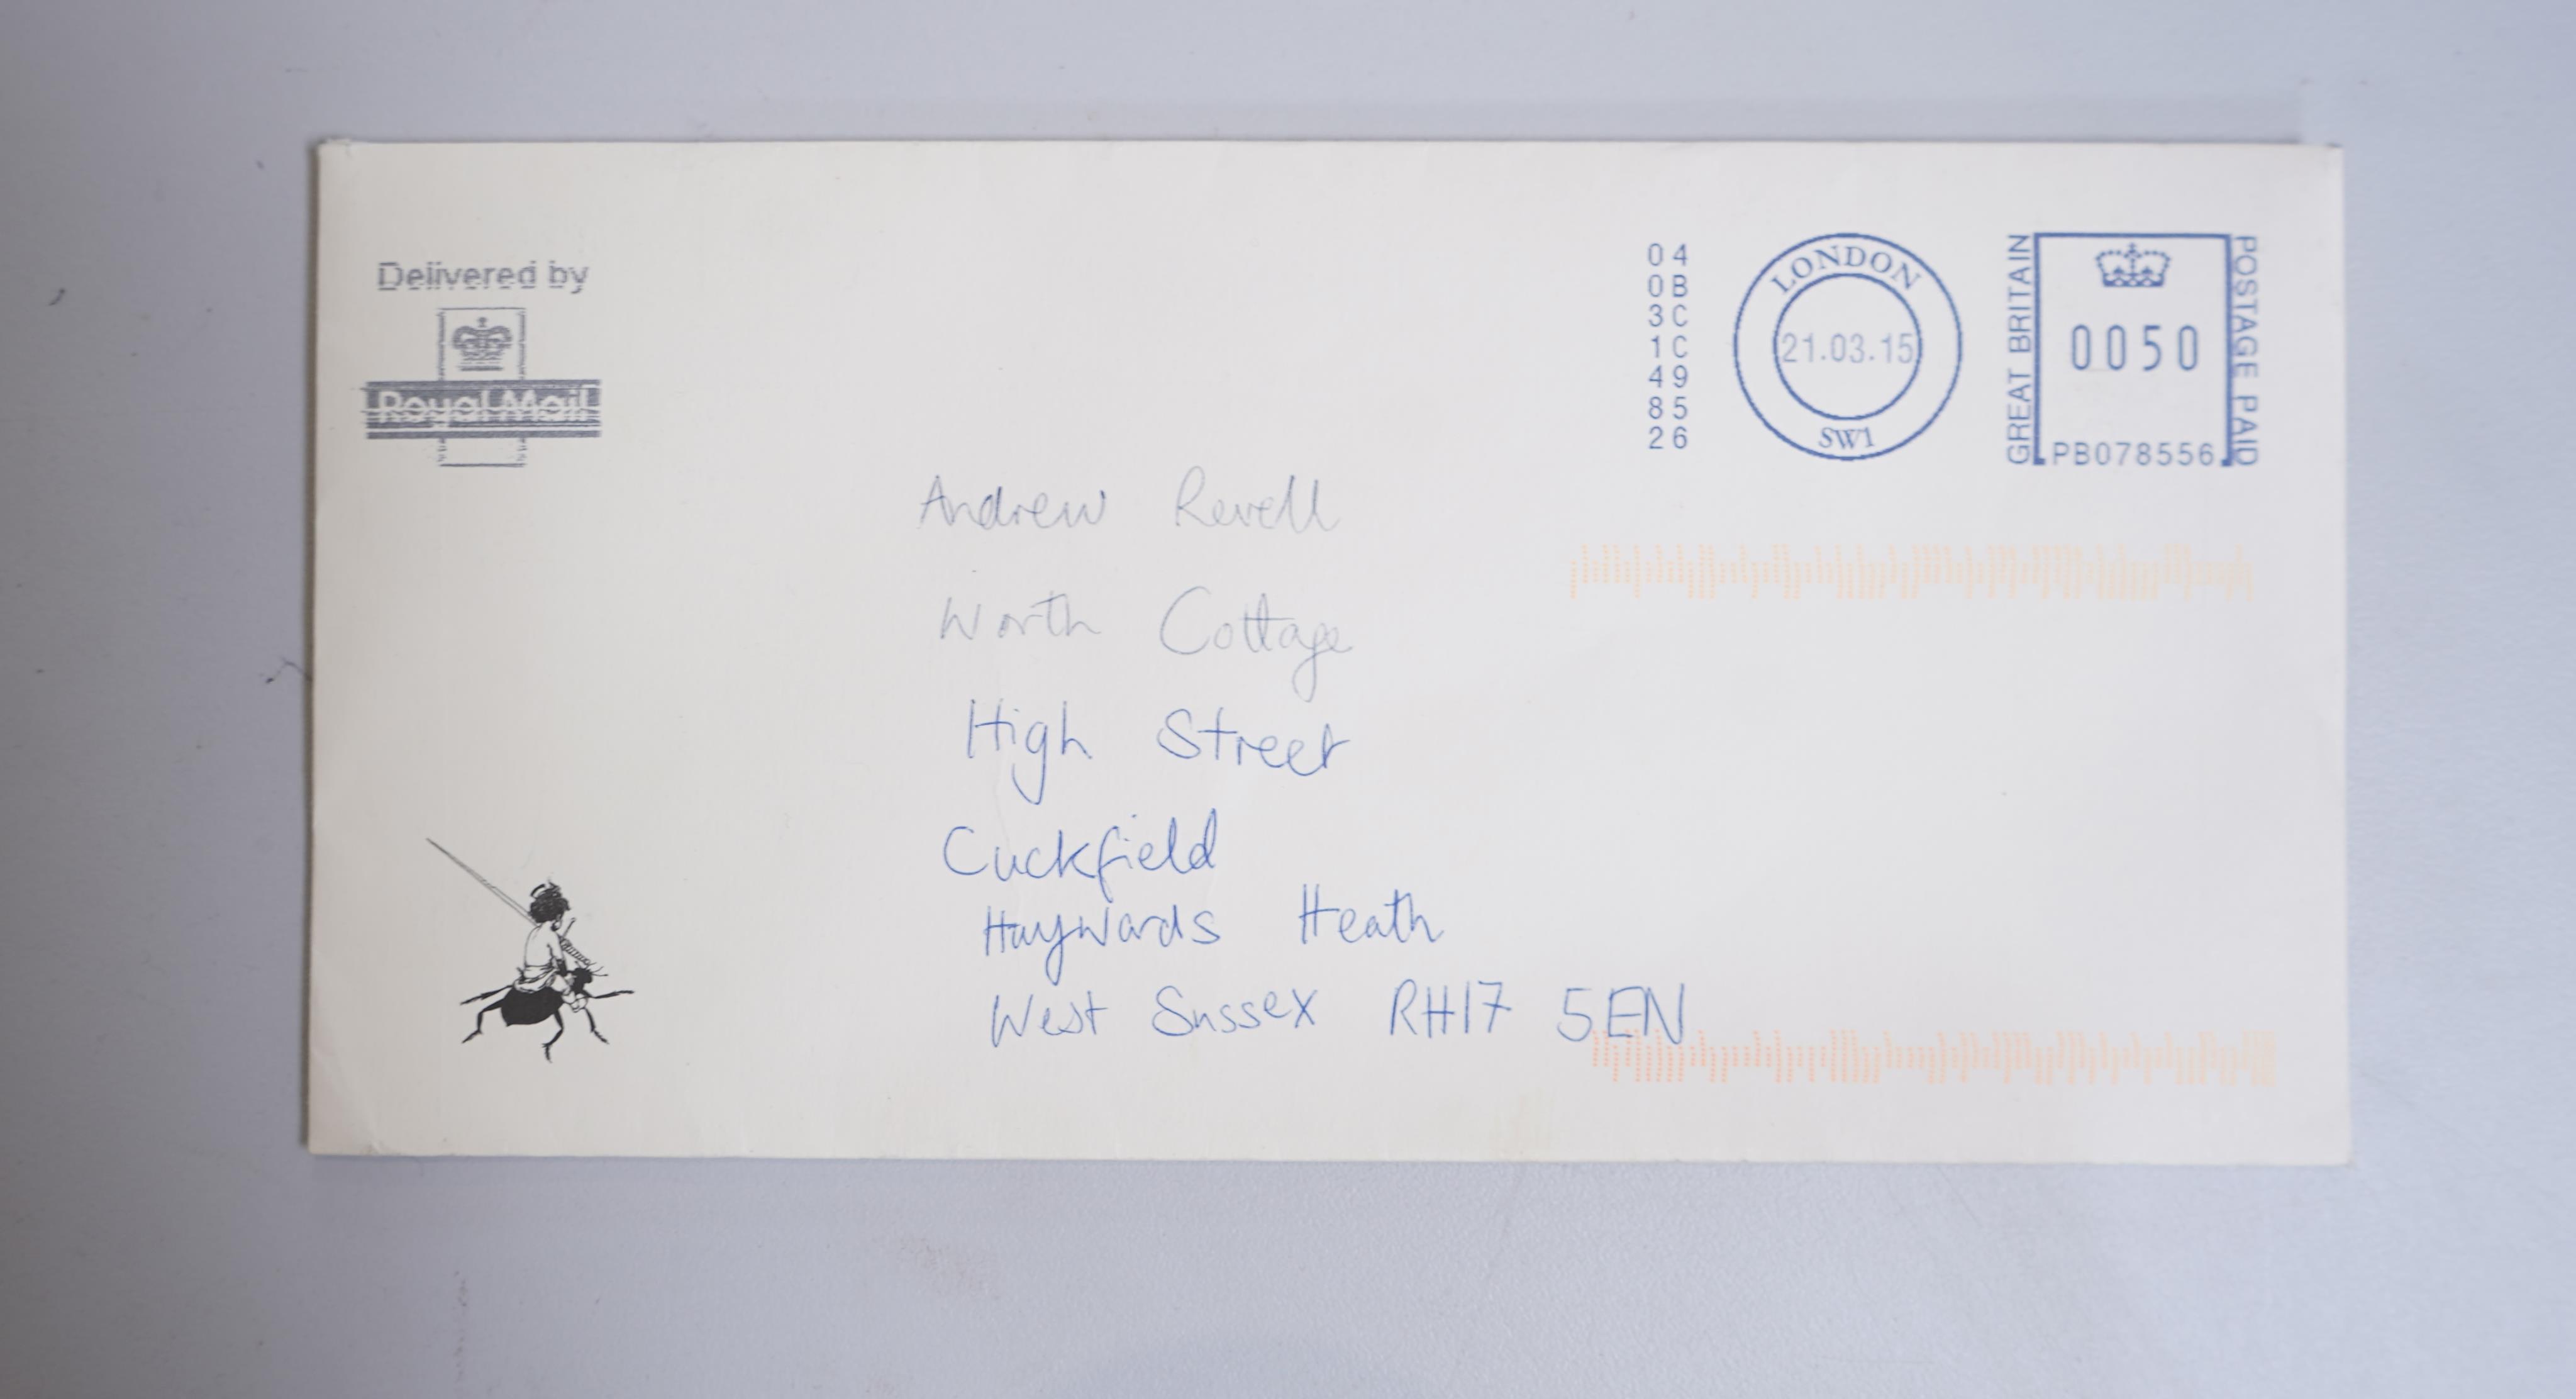 Delivered by
Royal Mail
04
0B
3C
1C
49
85
26
LONDON
21.03.15
SW1
GREAT BRITAIN
0050
PB078556
POSTAGE PAID
Andrew Revell
Worth Cottage
High Street
Cuckfield
Haywards Heath
West Sussex RH17 5EN